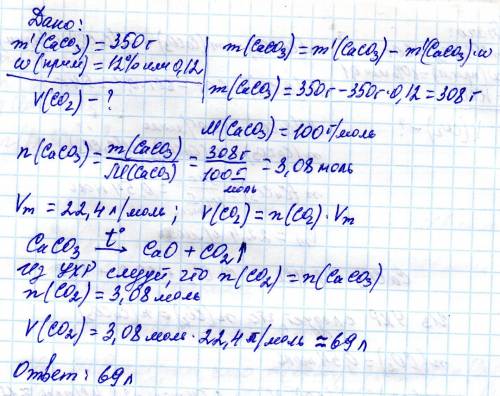 Дано:
m'(CaCO₃) = 350г
ω(прим) = 12% или 0,12
V(CO₂) - ?
m(CaCO₃) = m'(CaCO₃) - m'(CaCO₃)·ω
m(CaCO₃) = 350г - 350г·0,12 = 308г
M(CaCO₃) = 100г/моль
n(CaCO₃) = m(CaCO₃)/M(CaCO₃) = 308г/100г/моль = 3,08 моль
Vm = 22,4 л/моль; V(CO₂) = n(CO₂)·Vm
CaCO₃ t°→ CaO + CO₂↑
Из УХР следует, что n(CO₂) = n(CaCO₃)
n(CO₂) = 3,08 моль
V(CO₂) = 3,08 моль · 22,4 л/моль ≈ 69 л
Ответ: 69 л